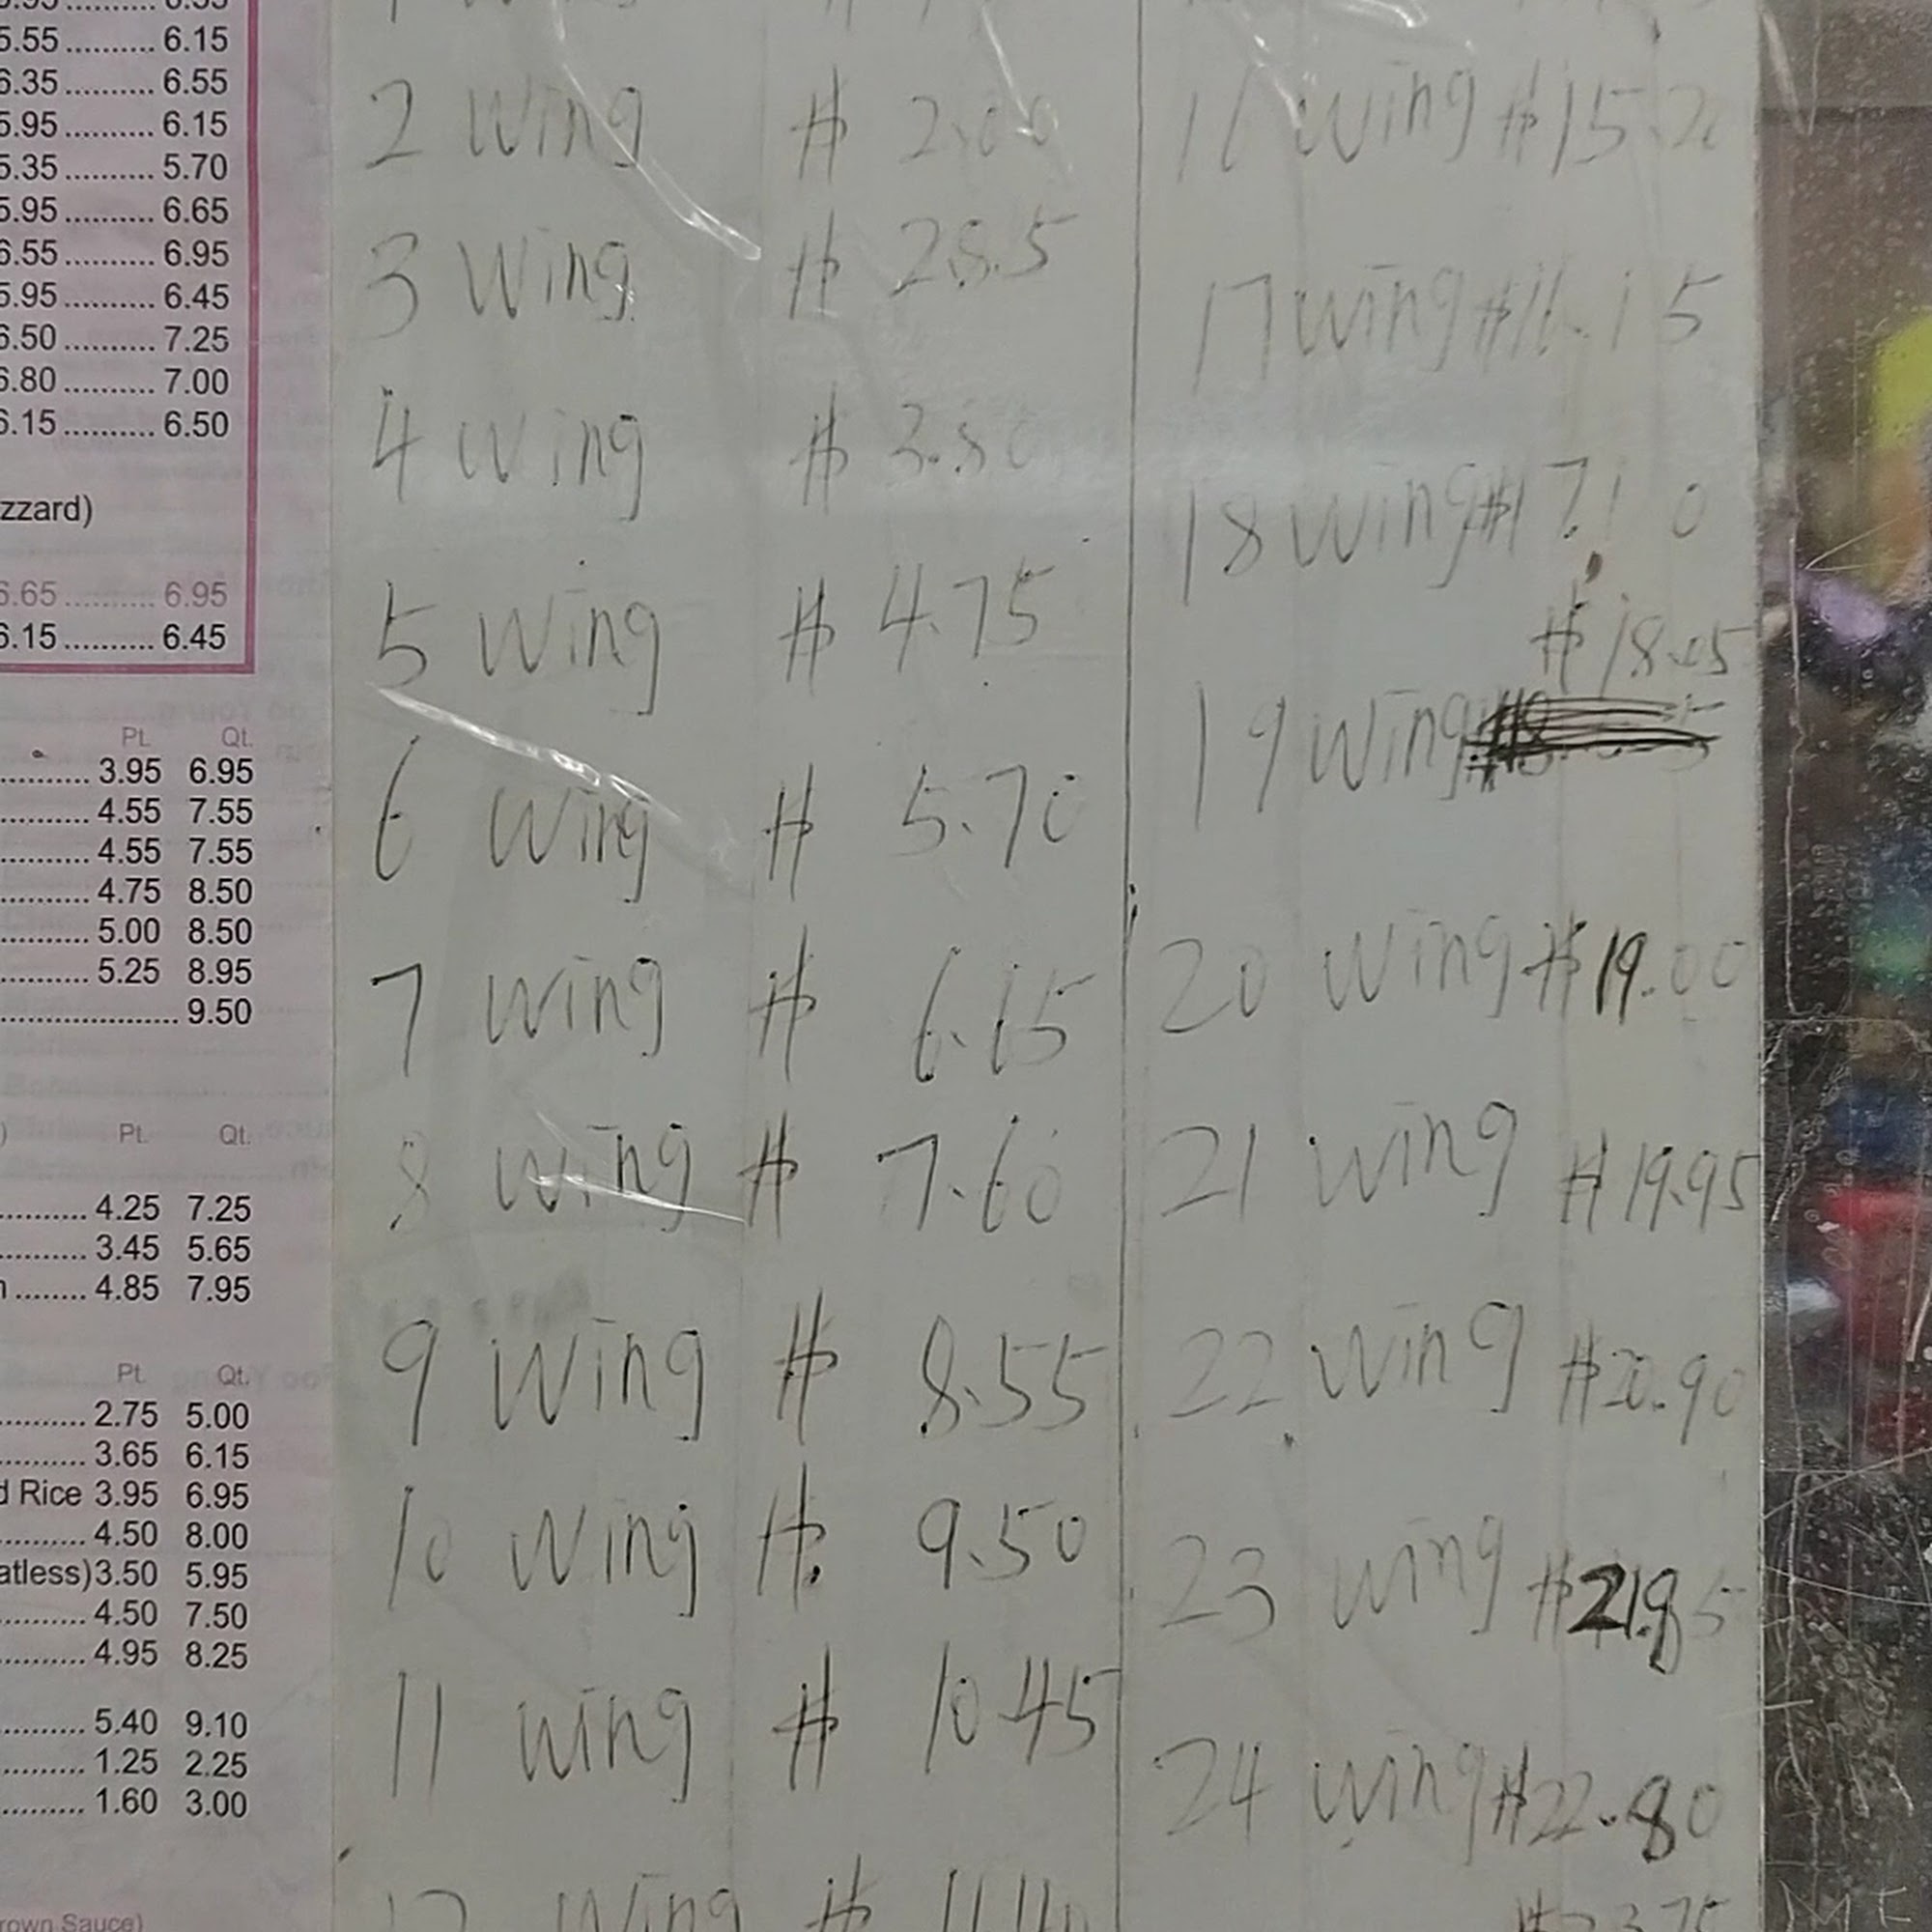 5.55 .......... 6.15
6.35 .......... 6.55
5.95 .......... 6.15
5.35 .......... 5.70
5.95 .......... 6.65
6.55 .......... 6.95
5.95 .......... 6.45
6.50 .......... 7.25
6.80 .......... 7.00
6.15 .......... 6.50
zzard)
6.65 .......... 6.95
6.15 .......... 6.45
Pt. Qt.
3.95 6.95
4.55 7.55
4.55 7.55
4.75 8.50
5.00 8.50
5.25 8.95
9.50
Pt. Qt.
4.25 7.25
3.45 5.65
4.85 7.95
Pt. Qt.
2.75 5.00
3.65 6.15
d Rice 3.95 6.95
4.50 8.00
atless) 3.50 5.95
4.50 7.50
4.95 8.25
5.40 9.10
1.25 2.25
1.60 3.00
rown Sauce)
2 Wing $ 2.00
3 Wing $ 28.5
4 Wing $ 3.80
5 Wing $ 4.75
6 Wing $ 5.70
7 Wing $ 6.65
8 Wing $ 7.60
9 Wing $ 8.55
10 Wing $ 9.50
11 Wing $ 10.45
12 Wing $ 11.40
16 Wing $15.20
17 Wing $16.15
18 Wing $17.10
$18.05
19 Wing
20 Wing $19.00
21 Wing $19.95
22 Wing $20.90
23 Wing $21.85
24 Wing $22.80